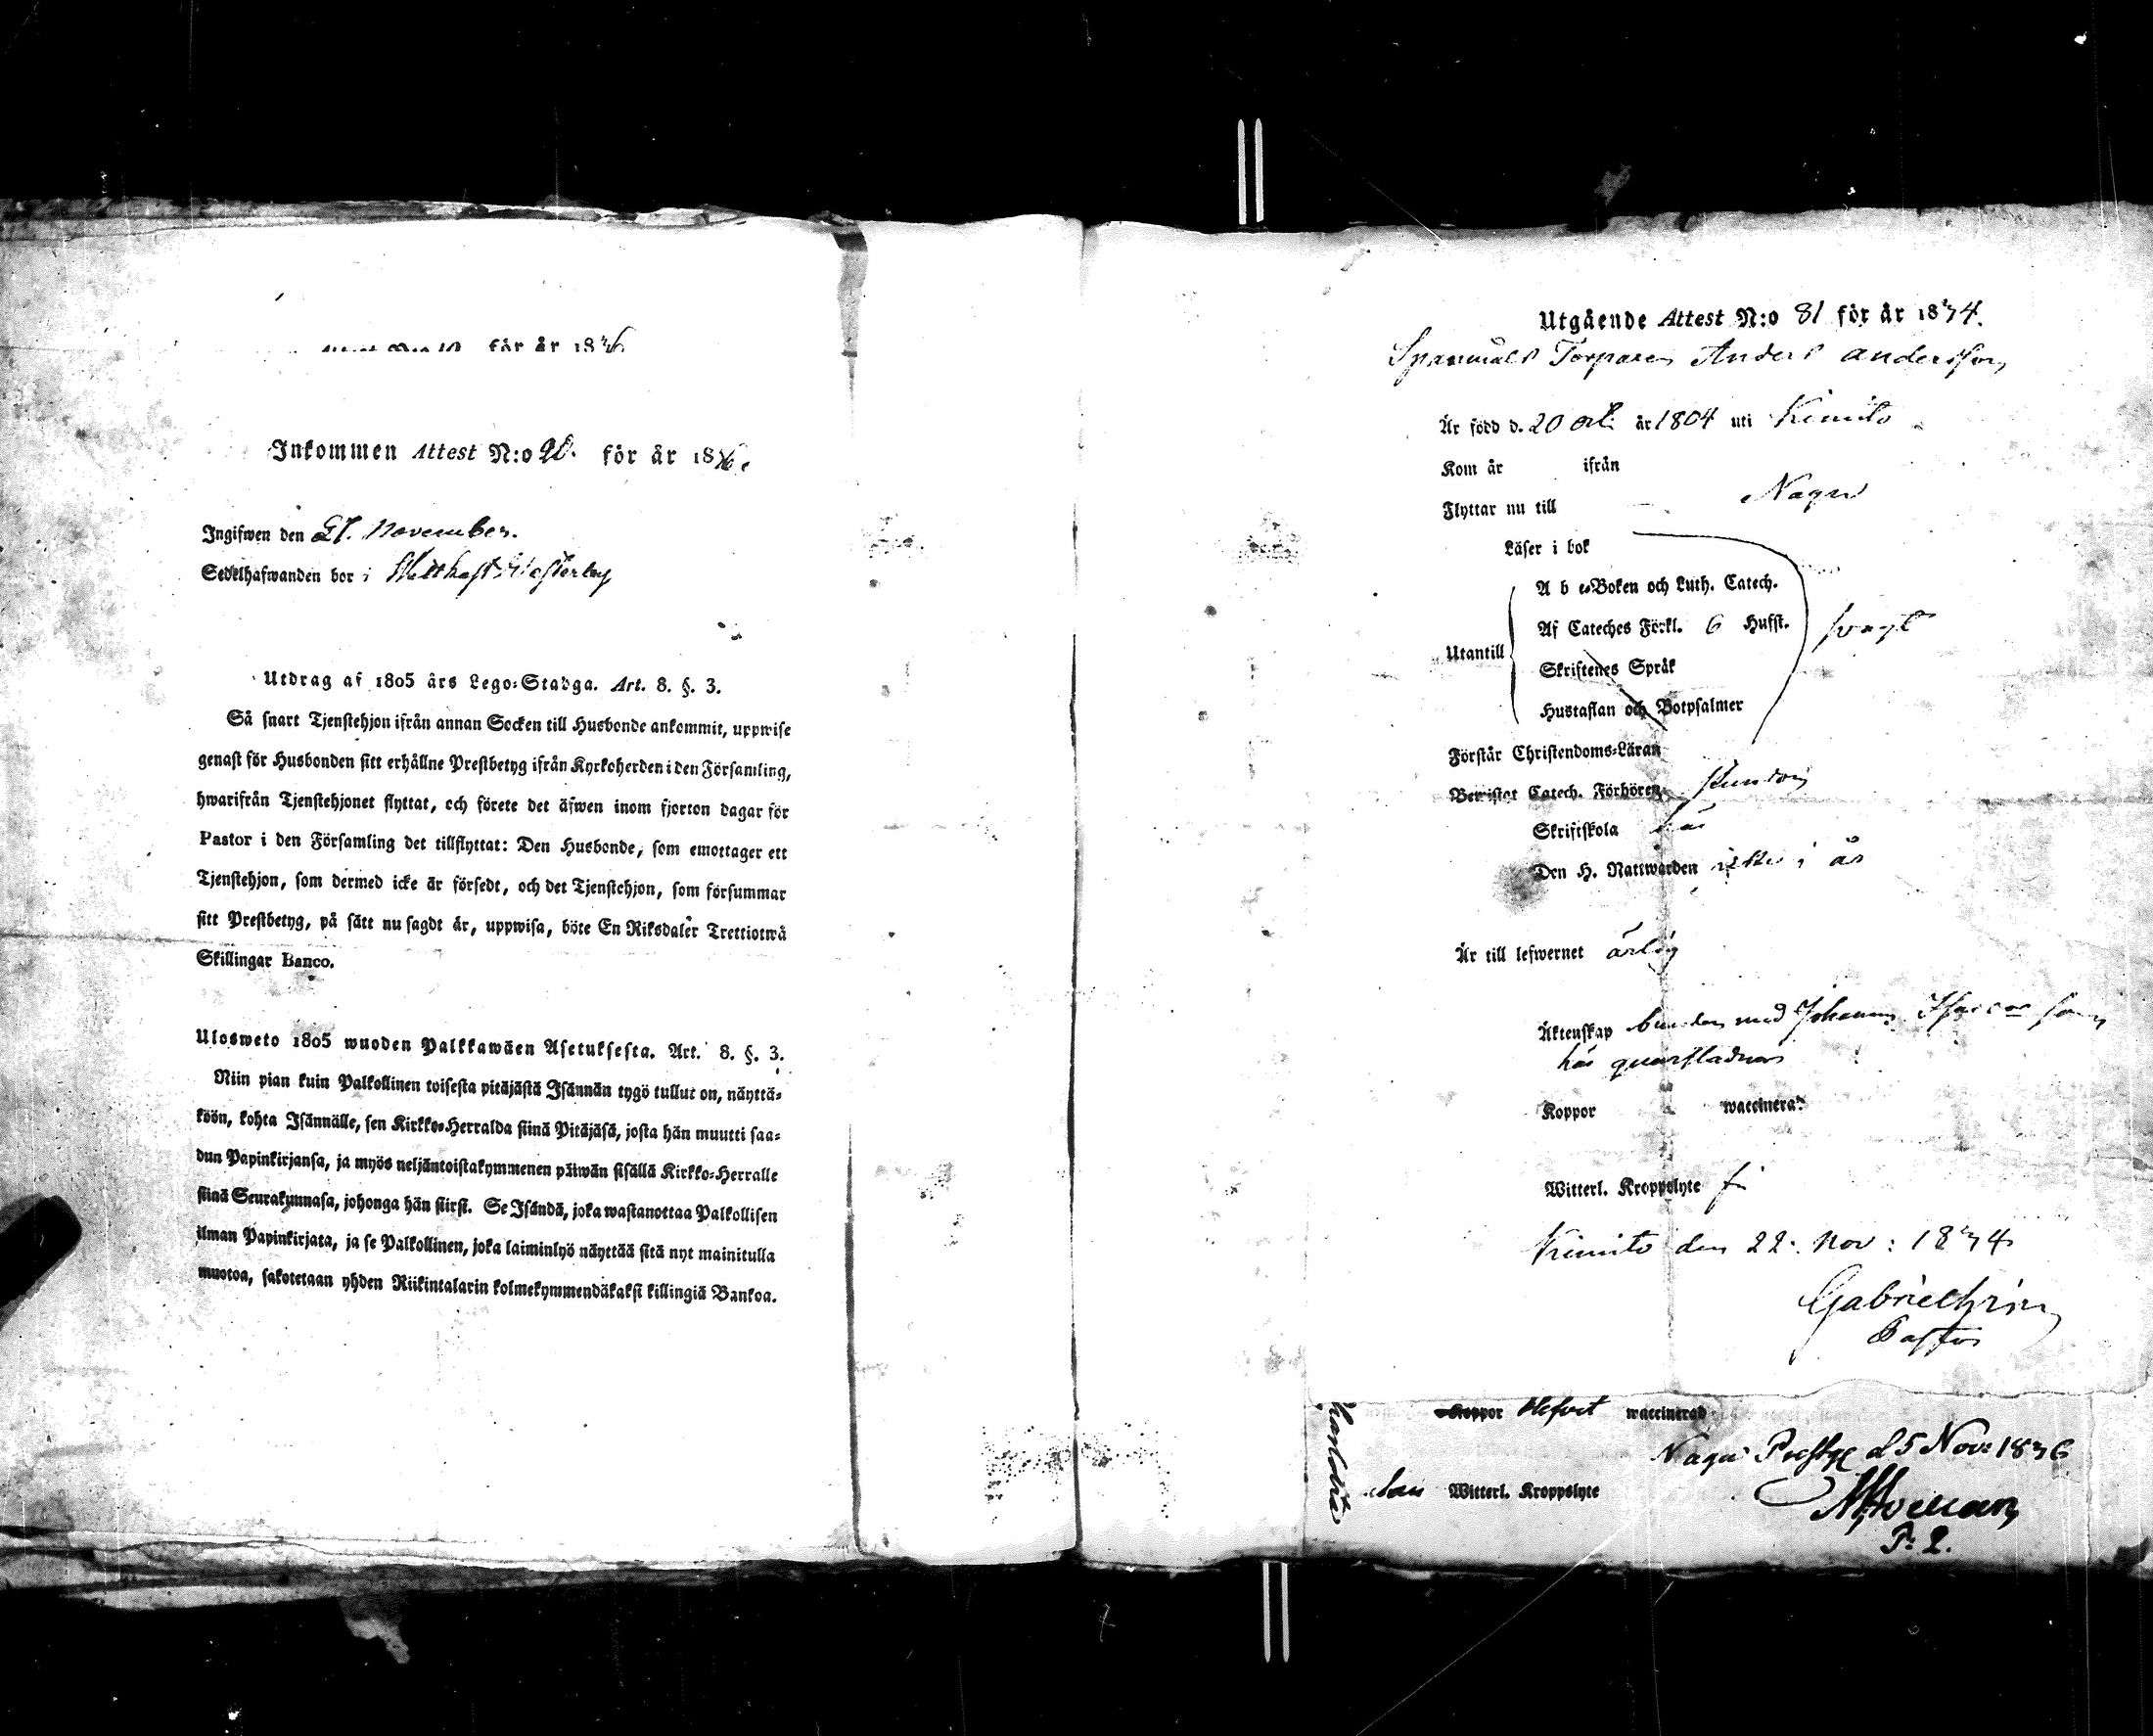 för år 18
Inkommen Attest N:o 20. för år 18
Ingifwen den 27. November.
Sedelhafwanden bor i Westerby
Utdrag af 1805 års Lego-Stadga. Art. 8. §. 3.
Så snart Tjenstehjon ifrån annan Socken till Husbonde ankommit, uppwise
genast för Husbonden sitt erhållne Prestbetyg ifrån Kyrkoherden i den Församling,
hwarifrån Tjenstehjonet flyttat, och förete det äfwen inom fjorton dagar för
Pastor i den Församling det tillflyttat: Den Husbonde, som emottager ett
Tjenstehjon, som dermed icke är försedt, och det Tjenstehjon, som försummar
sitt Prestbetyg, på sätt nu sagdt är, uppwisa, böte En Riksdaler Trettiotwå
Skillingar Banco.
Ulosweto 1805 wuoden Palkkawäen Asetuksesta. Art. 8. §. 3.
Niin pian kuin Palkollinen toisesta pitäjästä Isännän tygö tullut on, näyttä-
köön, kohta Isännälle, sen Kirkko-Herralda siinä Pitäjäsä, josta hän muutti saa-
dun Papinkirjansa, ja myös neljäntoistakymmenen päiwän sisällä Kirkko-Herralle
siinä Seurakunnasa, johonga hän siirst. Se Isändä, joka wastanottaa Palkollisen
ilman Papinkirjata, ja se Palkollinen, joka laiminlyö näyttää sitä nyt mainitulla
muotoa, sakotetaan yhden Riikintalarin kolmekymmendäkaksi killingiä Bankoa.
Utgående Attest N:o 81 för år 1834.
Torparen Anders Andersson
Är född d. 20 oct: år 1804 uti Kimito
Kom år ifrån
Flyttar nu till Nagu
Läser i bok
A b c-Boken och Luth. Catech.
Af Cateches Förkl. 6 Hufst. svagt
Utantill
Skriftenes Språk
Hustaflan och Botpsalmer
Förstår Christendoms-Läran
Bewistat Catech. Förhören stundom
Skriftskola här
Den H. Nattwarden i år
Är till lefwernet ärlig
Äktenskap bunden med Johanna
här
Koppor waccinerad
Witterl. Kroppslyte
Kimito den 22. Nov: 1834
Pastor
Koppor Hafvit waccinerad
Nagu d 5 Nov: 1836
Witterl. Kroppslyte